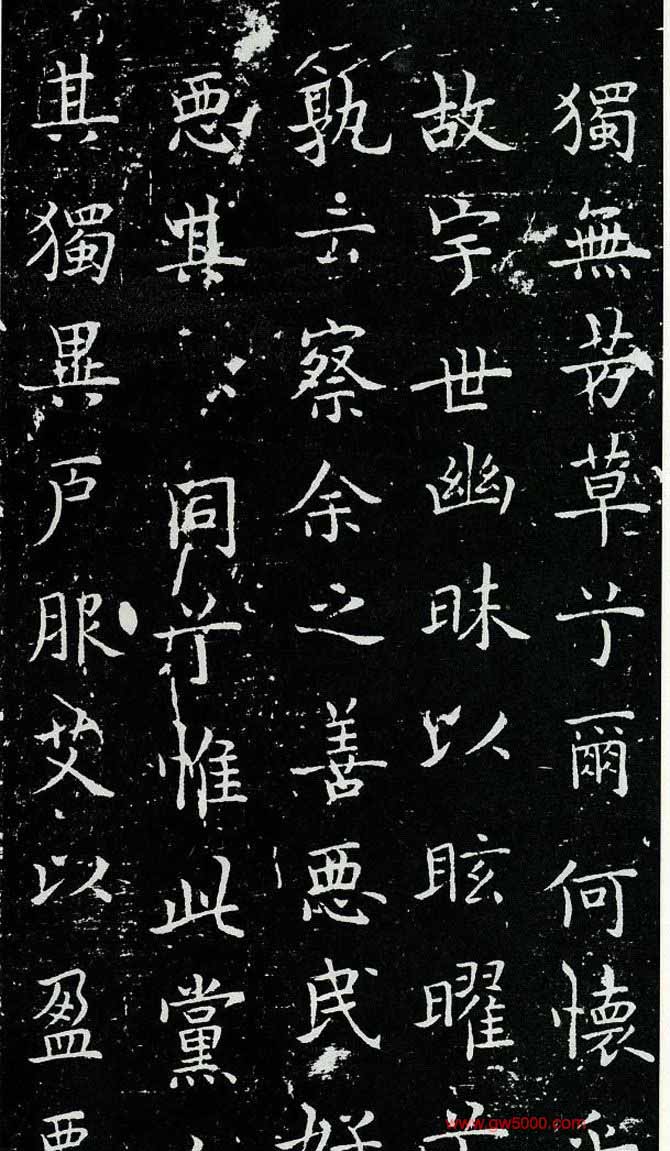 獨無芳草兮爾何懷
故宇世幽昧以眩曜兮
孰云察余之善悪民好
悪其同兮惟此黨
其獨異戶服艾以盈要
www.gw5000.com